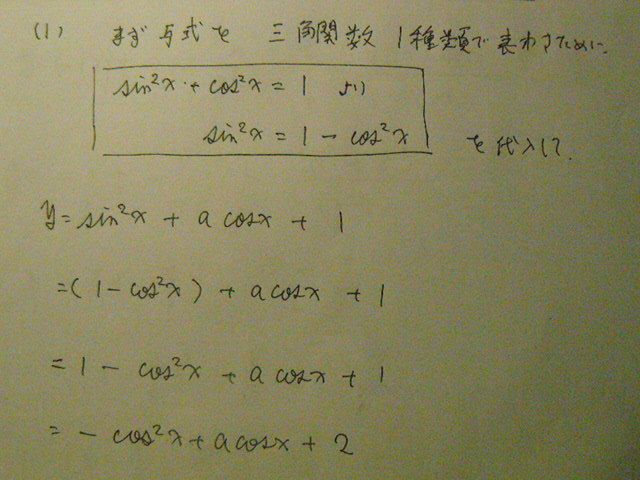 (1) まず与式を 三角関数1種類で表わすために、
sin²x + cos²x = 1 より
sin²x = 1 - cos²x を代入して、
y = sin²x + a cosx + 1
=(1-cos²x) + a cosx + 1
= 1 - cos²x + a cosx + 1
= - cos²x + a cosx + 2